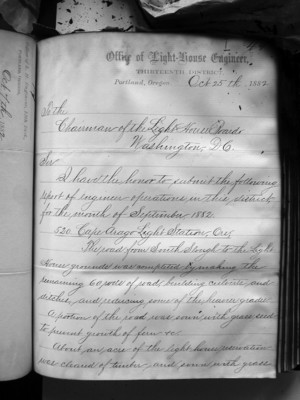 Office of Light-House Engineer,
THIRTEENTH DISTRICT,
Portland, Oregon, Oct 25th, 1882
To the
Chairman of the Light House Board
Washington, D.C.
Sir
I have the honor to submit the following
report of engineer operations in this district
for the month of September 1882.
520. Cape Arago Light Station, Or,
The road from South Slough to the Light
House grounds was completed by making the
remaining 60 rods of road, building culverts, and
ditches, and reducing some of the heavier grades.
A portion of the road was sown with grass seed
to prevent growth of fern &c.
About an acre of the light house reservation
was cleared of timber, and sown with grass
Oct 7th, 1882